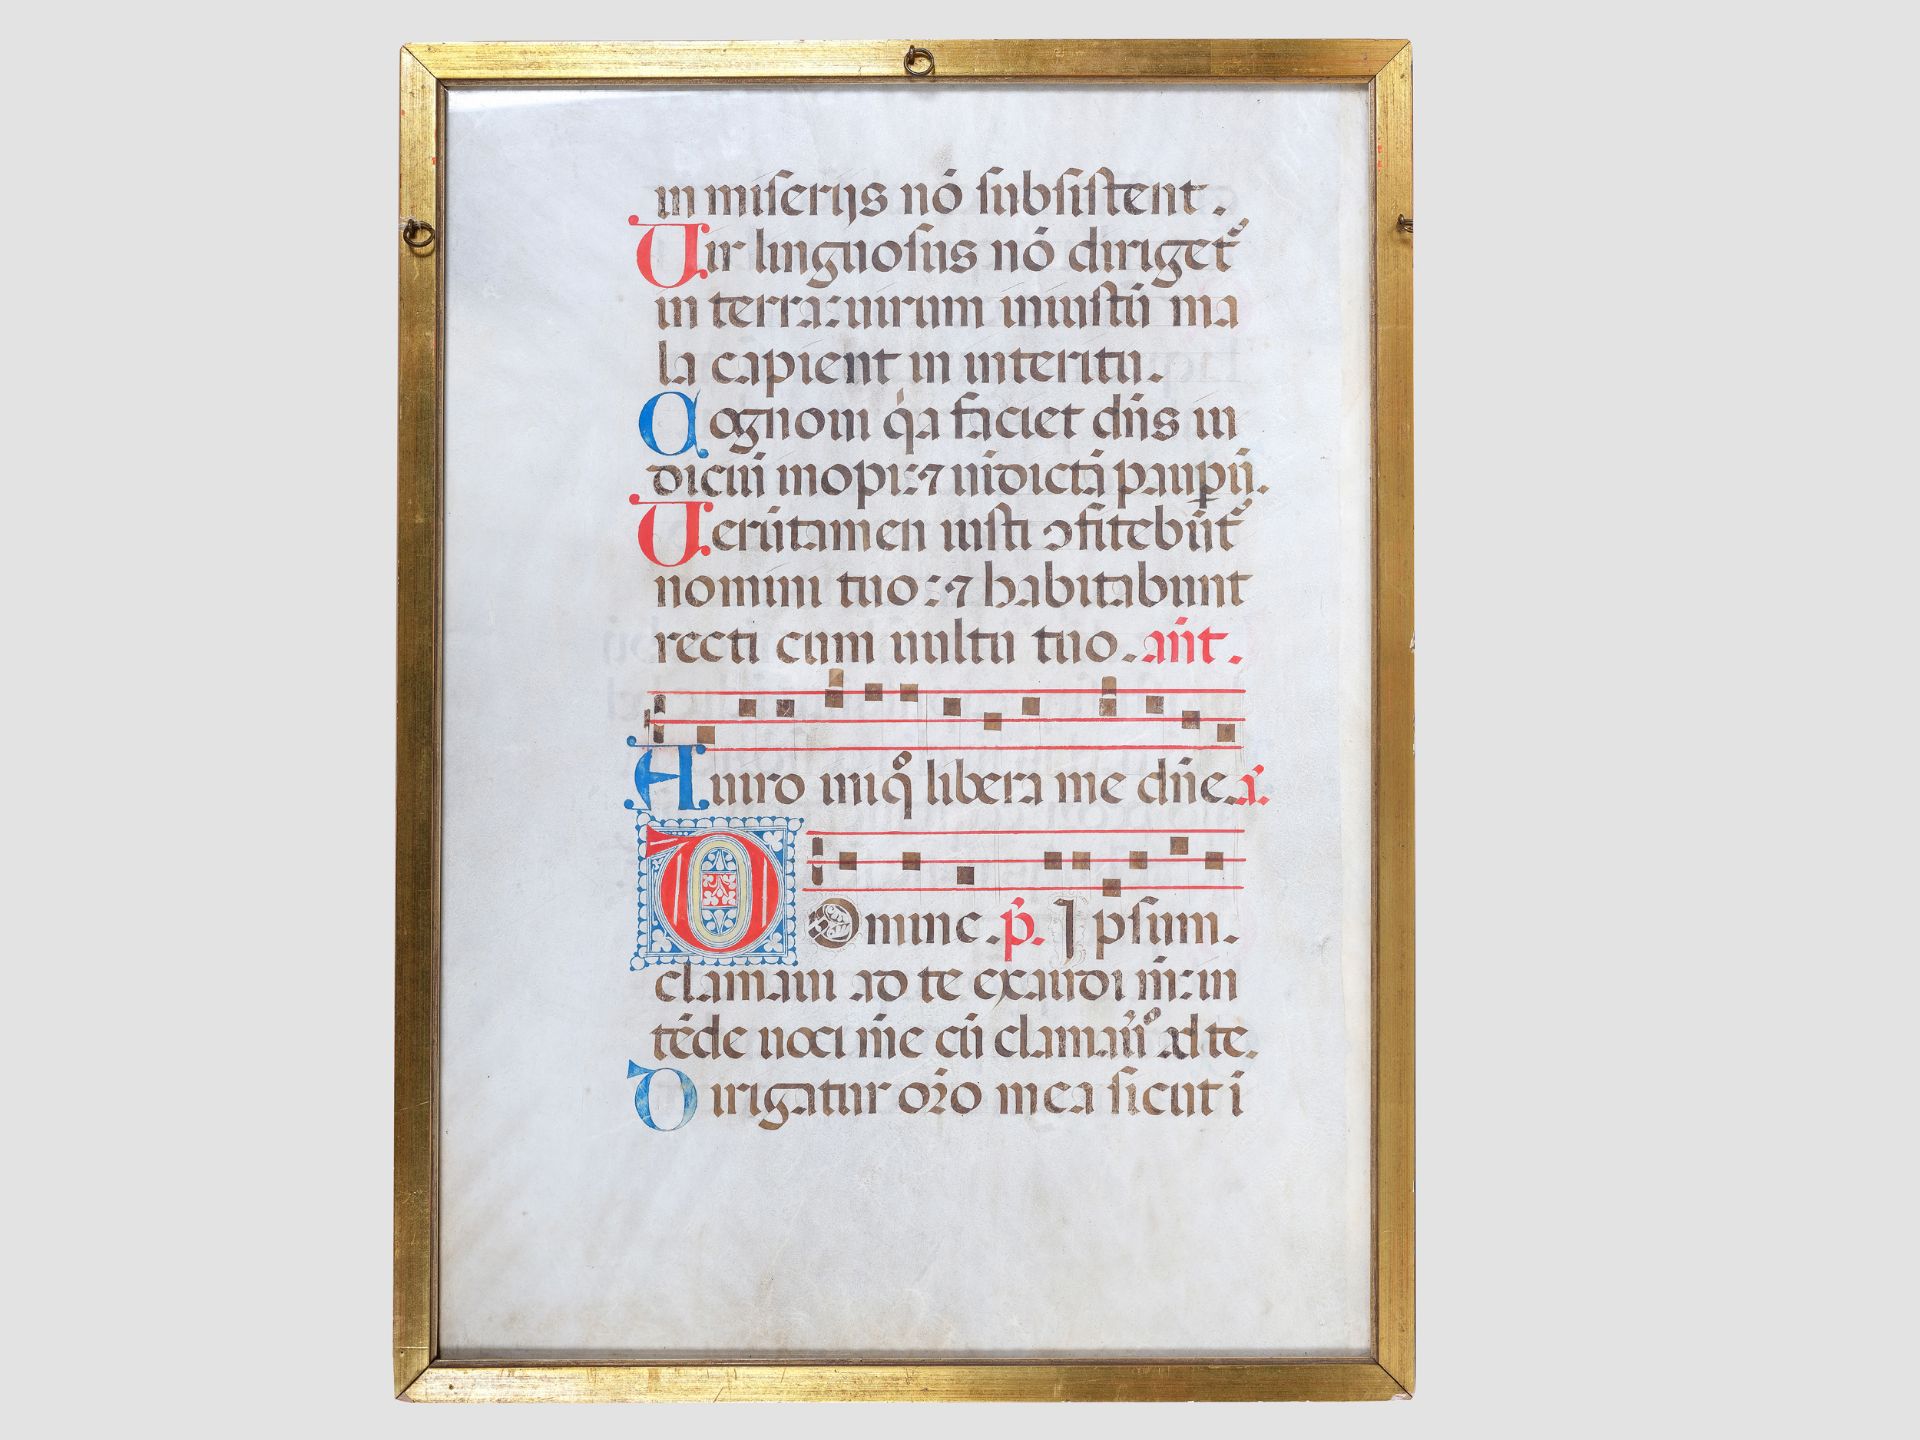 in miserijs nō subsistent.
Uir linguosus nō diriget᷑
in terra: uirum iniustū ma
la capient in interitu.
Cognoui q̇a faciet dn̄s iu
diciū inopi: ⁊ uīdictā paup̱ū.
Uerūtamen iusti ꝯfitebūt᷑
nomini tuo: ⁊ habitabunt
recti cum uultu tuo. an̄t.
A uiro iniqͦ libera me dn̄e. a᷑.
D Omine. p̄. Ipsum.
clamaui ad te exaudi m̄: in
tēde uoci mē cū clamau᷑o ad te.
Dirigatur or̄o mea sicut i